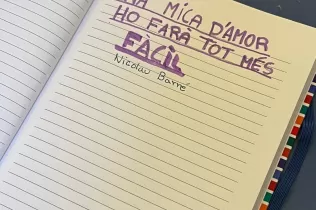 MICA D'AMOR
HO FARÀ TOT MÉS
FÀCIL
Nicolau Barré